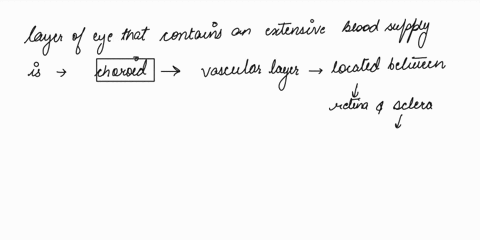 layer of eye that contains an extensive blood supply
is → choroid → vascular layer → located between
↓
retina & sclera
↓